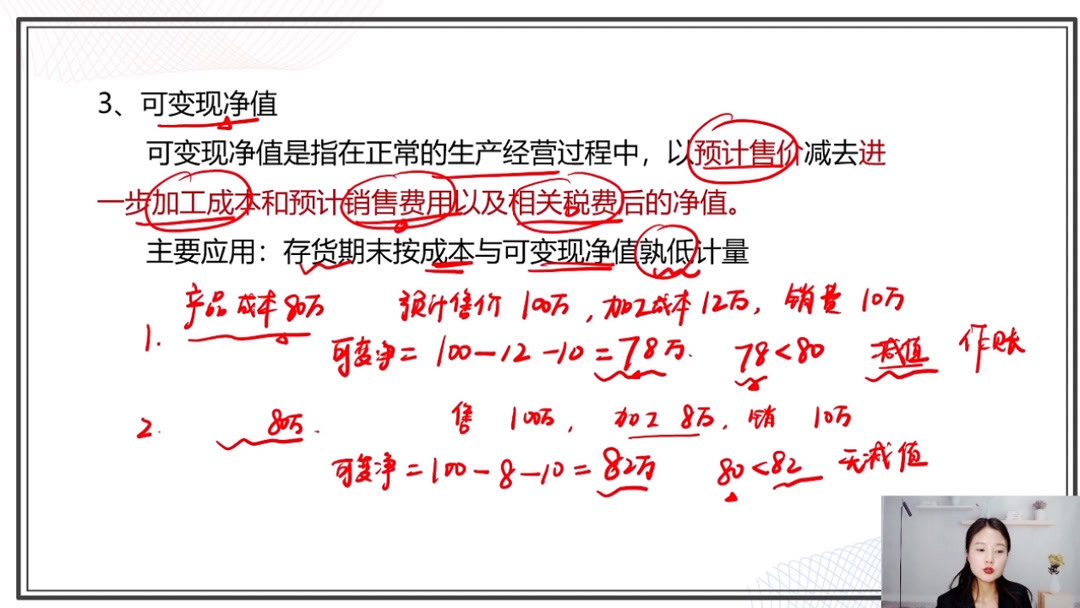 3、可变现净值
可变现净值是指在正常的生产经营过程中，以预计售价减去进
一步加工成本和预计销售费用以及相关税费后的净值。
主要应用：存货期末按成本与可变现净值孰低计量
1. 产品成本80万 预计售价 100万，加工成本12万，销费 10万
可变净 = 100-12-10 = 78万. 78<80 减值 作账
2. 80万. 售 100万，加工 8万，销 10万
可变净 = 100-8-10 = 82万 80<82 无减值